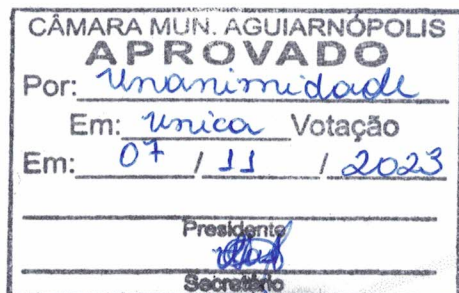 CÂMARA MUN. AGUIARNÓPOLIS
APROVADO
Por: Unanimidade
Em: Unica Votação
Em: 07 / 11 / 2023
Presidente
Secretário